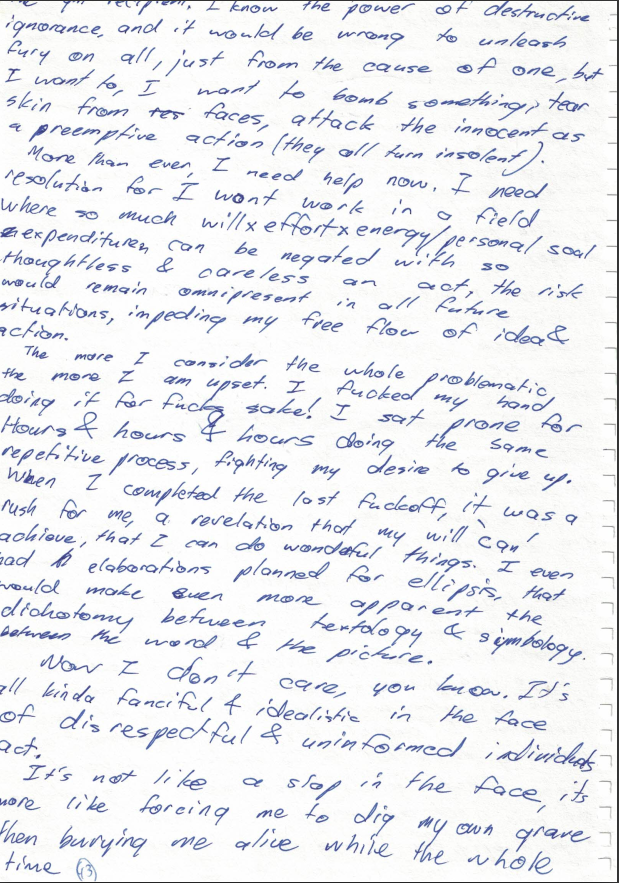 recipient. I know the power of destructive
ignorance, and it would be wrong to unleash
fury on all, just from the cause of one, but
I want to, I want to bomb something, tear
skin from faces, attack the innocent as
a preemptive action (they all turn insolent).
More than ever, I need help now. I need
resolution for I wont work in a field
where so much will x effort x energy/personal soul
expenditures can be negated with so
thoughtless & careless an act, the risk
would remain omnipresent in all future
situations, impeding my free flow of idea &
action.
The more I consider the whole problematic
the more I am upset. I fucked my hand
doing it for fucks sake! I sat prone for
Hours & hours & hours doing the same
repetitive process, fighting my desire to give up.
When I completed the last fuckoff, it was a
rush for me, a revelation that my will 'can'
achieve, that I can do wonderful things. I even
had elaborations planned for ellipsis, that
would make even more apparent the
dichotomy between textology & symbology.
between the word & the picture.
Now I don't care, you know. It's
all kinda fanciful & idealistic in the face
of disrespectful & uninformed individuals
act.
It's not like a slap in the face, its
more like forcing me to dig my own grave
then burying me alive while the whole
time 13